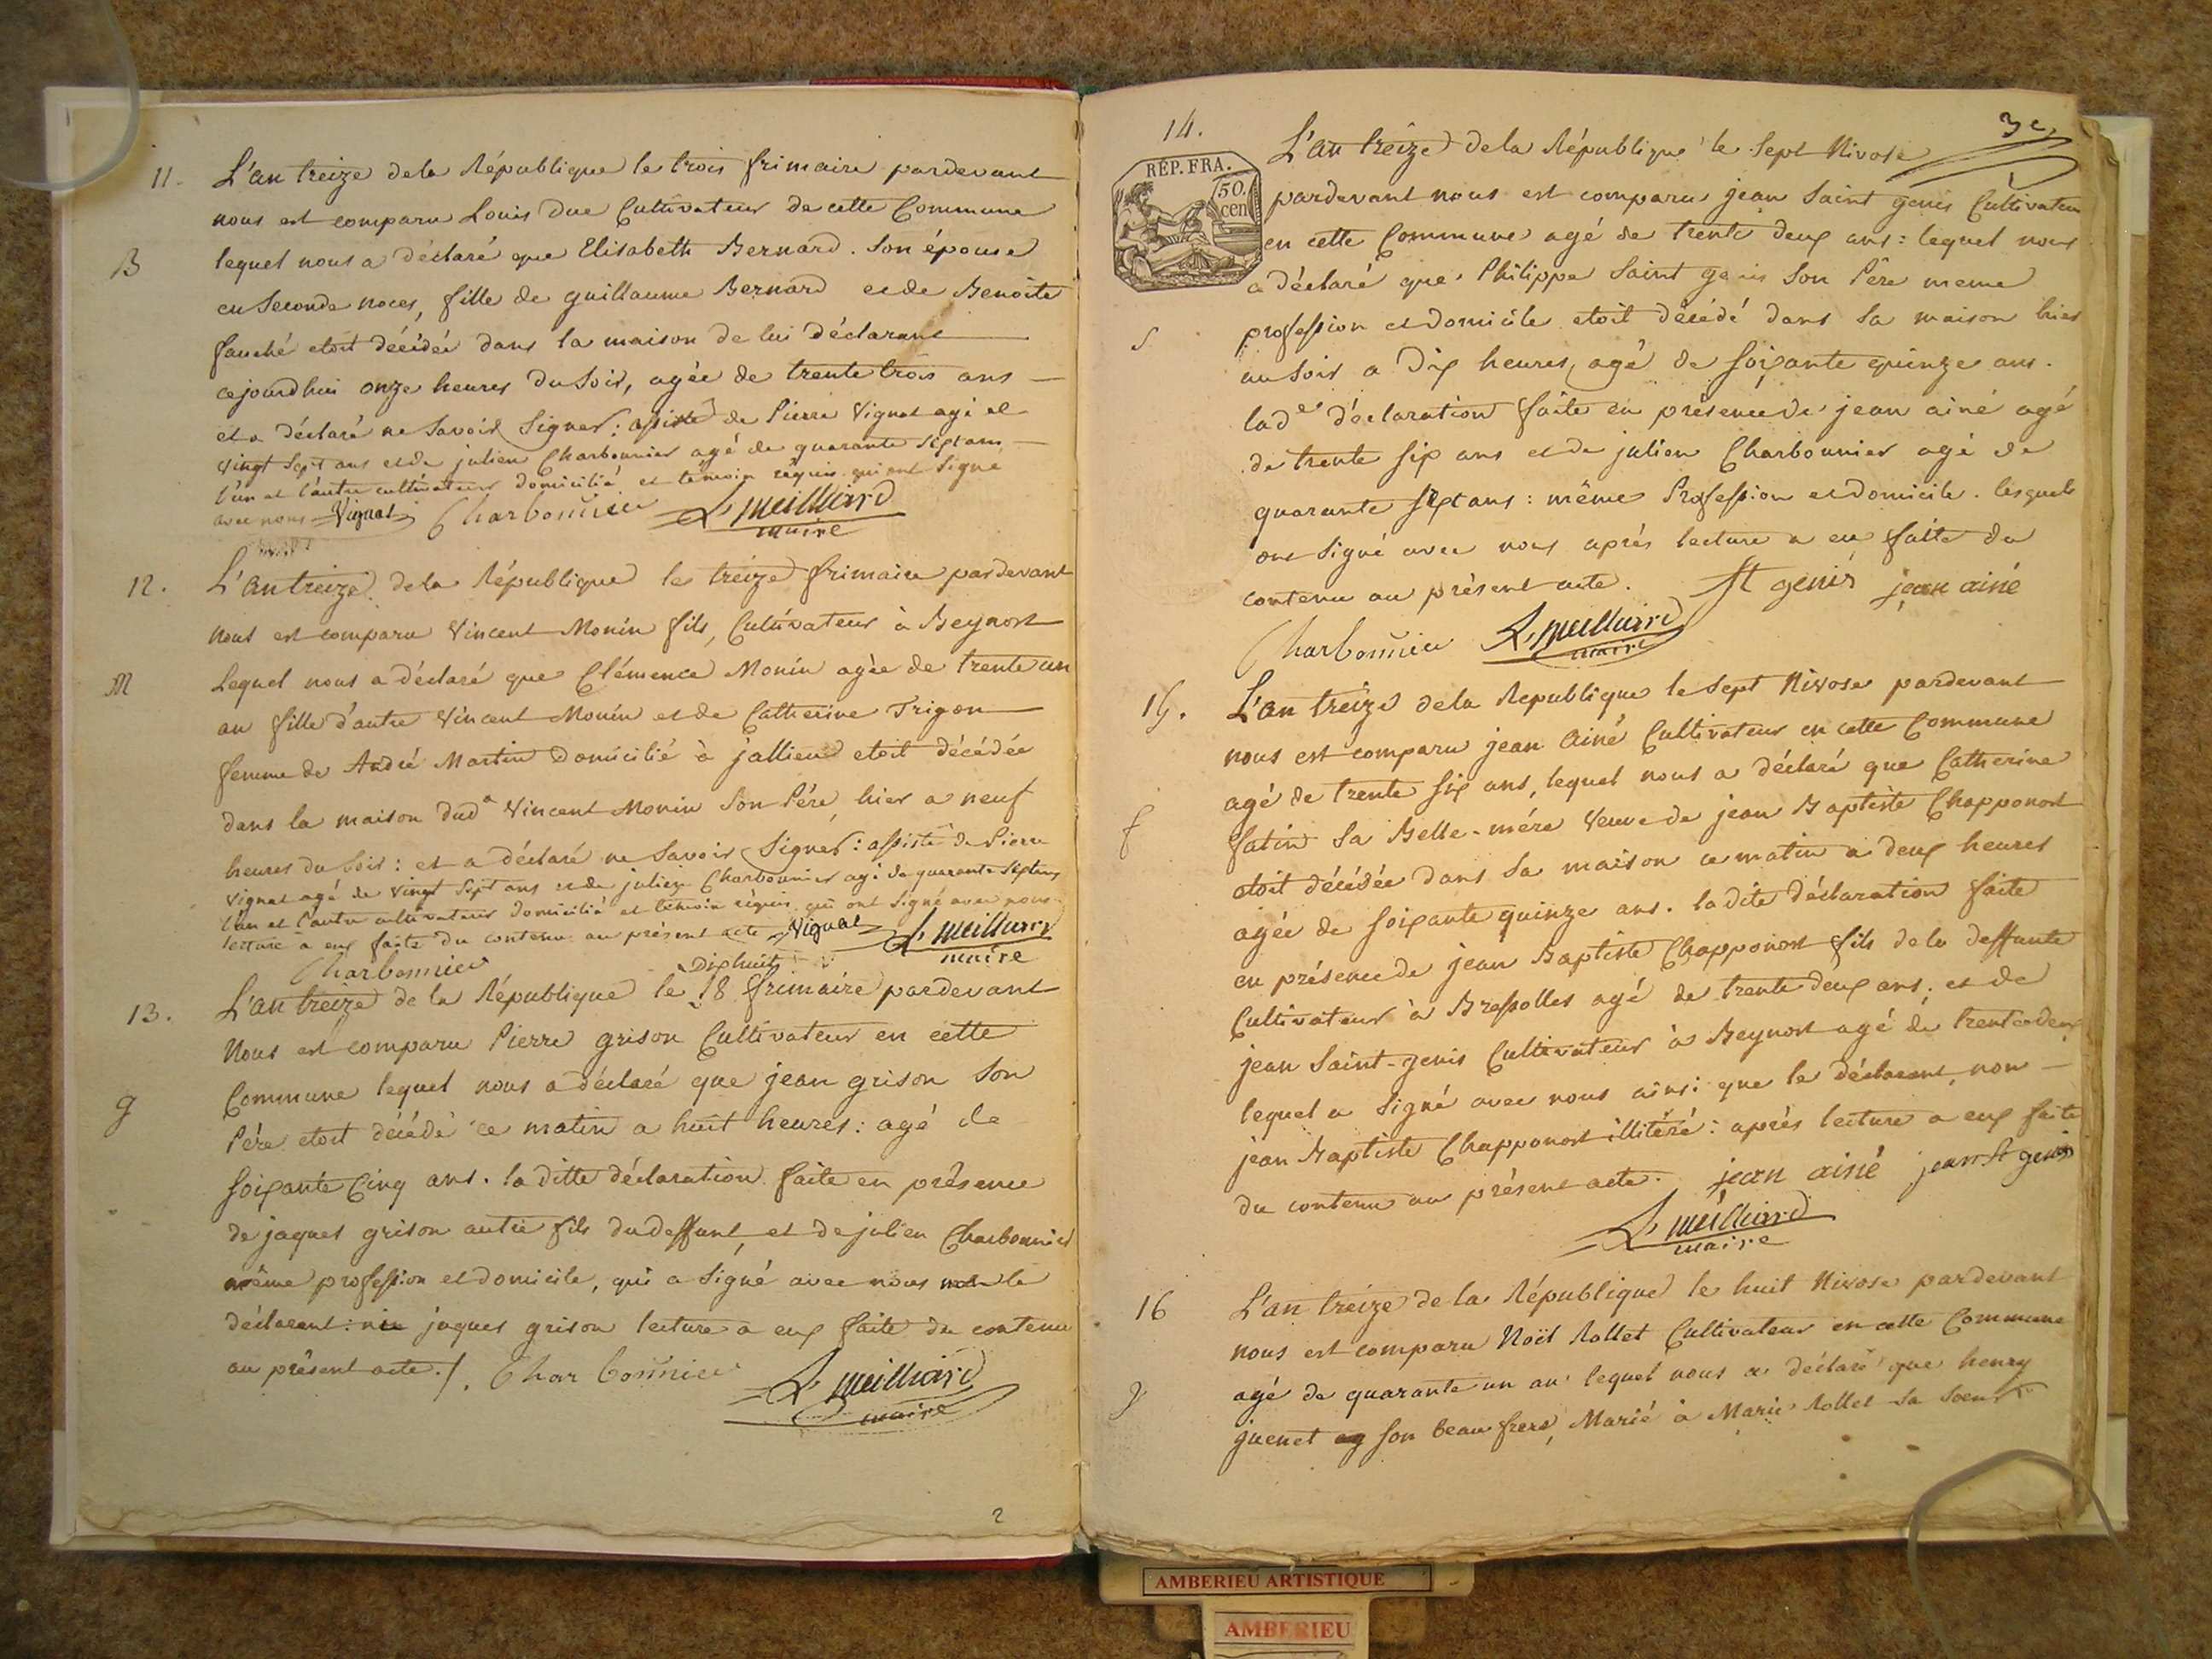 11. L'an treize de la République le trois frimaire pardevant
nous est comparu Louis Duc Cultivateur de cette Commune
B
lequel nous a déclaré que Elisabeth Bernard. Son épouse
en Seconde noces, fille de guillaume Bernard et de Benoite
fauché etoit décédée dans la maison de lui déclarant
cejourdhui onze heures du Soir, agée de trente trois ans
et a déclaré ne Savoir Signer: assisté de Pierre Vignat agé de
vingt Sept ans et de julien Charbonnier agé de quarante Sept ans
l'un et l'autre cultivateurs domicilié et témoin réquis qui ont Signé
avec nous Vignat Charbonnier L. meilliard
maire
12. L'an treize de la République le treize frimaire pardevant
nous est comparu Vincent Monin fils, Cultivateur à Beynost
M
Lequel nous a déclaré que Clémence Monin agée de trente un
an fille d'autre Vincent Monin et de Catherine Trigon
femme de André Martin Domicilié à jallieu etoit décédée
dans la maison dud. Vincent Monin Son Pére, hier a neuf
heures du Soir: et a déclaré ne Savoir Signer: assisté de Pierre
Vignat agé de vingt Sept ans et de julien Charbonnier agé de quarante Septans
l'un et l'autre cultivateurs domicilié et témoin réquis qui ont Signé avec nous
lecture a eux faite du contenu au présent acte Vignat L. meilliard
maire
Charbonnier
Dixhuit
13. L'an treize de la République le 18 frimaire pardevant
Nous est comparu Pierre grison Cultivateur en cette
g
Commune lequel nous a déclaré que jean grison Son
Pére etoit décédé ce matin a huit heures: agé de
Soixante Cinq ans. la ditte déclaration faite en présence
de jaques grison autre fils du deffunt, et de julien Charbonnier
même profession et domicile, qui a Signé avec nous non le
déclarant: ni jaques grison lecture a eux faite du contenu
au présent acte./. Charbonnier L. meilliard
maire
2
3e
14. L'an treize de la République le Sept Nivose
RÉP. FRA.
50.
cen
pardevant nous est comparu jean Saint genis Cultivateur
en cette Commune agé de trente deux ans: lequel nous
a déclaré que Philippe Saint genis Son Pére meme
S
profession et domicile etoit décédé dans Sa maison hier
au Soir a Dix heures, agé de Soixante quinze ans.
lade déclaration faite en présence de jean ainé agé
de trente Six ans et de julien Charbonnier agé de
quarante Sept ans: même Profession et domicile. lesquels
ont Signé avec nous aprés lecture a eux faite du
contenu au présent acte. St genis jean ainé
Charbonnier L. meilliard
maire
15. L'an treize de la Republique le Sept Nivose pardevant
nous est comparu jean Ainé Cultivateur en cette Commune
agé de trente Six ans, lequel nous a déclaré que Catherine
f
fatin Sa Belle-mére Veuve de jean Baptiste Chapponost
etoit décédée dans Sa maison ce matin a deux heures
agée de Soixante quinze ans. la dite déclaration faite
en présence de jean Baptiste Chapponost fils de la deffunte
Cultivateur à Bressolles agé de trente deux ans, et de
jean Saint-genis Cultivateur à Beynost agé de trente deux
lequel a Signé avec nous ainsi que le déclarant, non
jean Baptiste Chapponost illitéré: aprés lecture a eux faite
du contenu au présent acte. jean ainé jean St genis
L. meilliard
maire
16 L'an treize de la République le huit Nivose pardevant
nous est comparu Noël Rollet Cultivateur en cette Commune
agé de quarante un an lequel nous a déclaré que henry
g
guenet Son beau frere, Marié à Marie Rollet Sa Soeur
AMBERIEU ARTISTIQUE
AMBERIEU